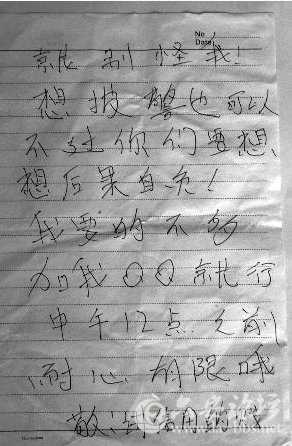 No
Date
就别怪我!
想报警也可以
不过你们要想
想后果自负!
我要的不多
加我QQ就行
中午12点之前
耐心有限哦